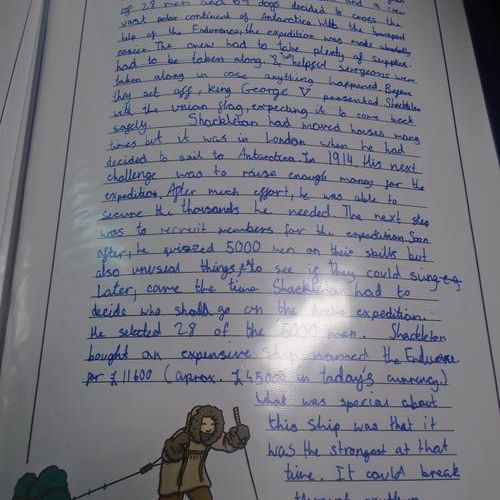 of 28 men and 69 dogs decided to cross the
vast polar continent of Antarctica. With the
help of the Endurance, the expedition was made
easier. The crew had to take plenty of supplies
had to be taken along. helpful surgeons were
taken along in case anything happened. Before
they set off, king George V presented Shackleton
with the union flag, expecting it to come back
safely. Shackleton had moved houses many
times but it was in London when he had
decided to sail to Antarctica. In 1914 His next
challenge was to raise enough money for the
expedition. After much effort, he was able to
secure the thousands he needed. The next step
was to recruit members for the expedition. Soon
after, he quizzed 5000 men on their skills but
also unusual things to see if they could sing
Later, came the time Shackleton had to
decide who shall go on the expedition.
He selected 28 of the 5000 men. Shackleton
bought an expensive ship named the Endurance
for £11600 (aprox. £45000 in today's currency.)
What was special about
this ship was that it
was the strongest at that
time. It could break